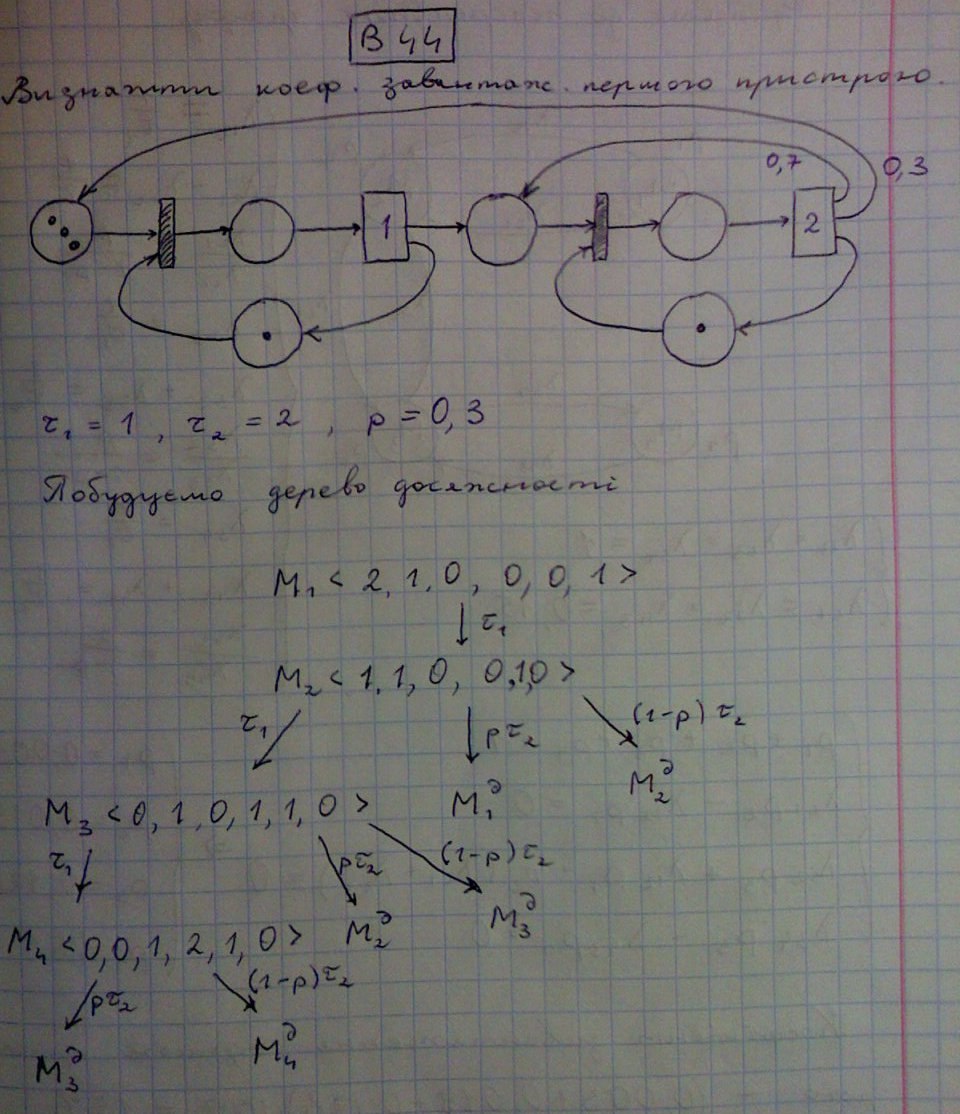 В 44
Визначити коеф. завантаж. першого пристрою.
0,7
0,3
1
2
τ₁ = 1 , τ₂ = 2 , p = 0,3
Побудуємо дерево досяжності
M₁ < 2, 1, 0, 0, 0, 1 >
τ₁
M₂ < 1, 1, 0, 0,1,0 >
τ₁ pτ₂ (1-p) τ₂
M₃ < 0, 1, 0, 1, 1, 0 > M₁ᵈ M₂ᵈ
τ₁ pτ₂ (1-p)τ₂
M₄ < 0, 0, 1, 2, 1, 0 > M₂ᵈ M₃ᵈ
pτ₂ (1-p)τ₂
M₃ᵈ M₄ᵈ